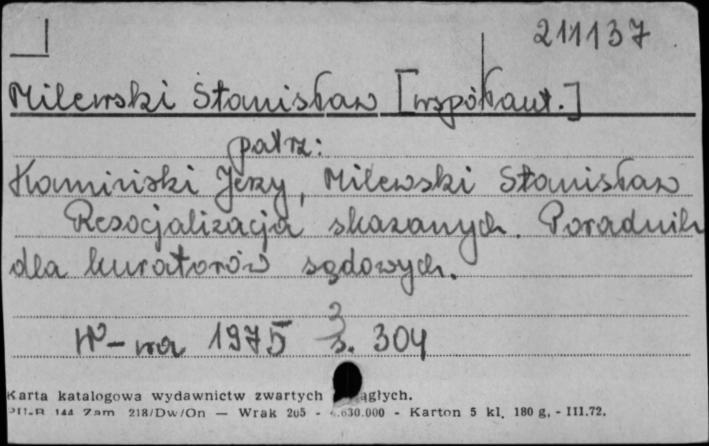 211137
Milewski Stanisław [współaut.]
patrz:
Kamiński Jerzy, Milewski Stanisław
Resocjalizacja skazanych. Poradnik
dla kuratorów sądowych.
W-wa 1975 s. 304
Karta katalogowa wydawnictw zwartych ągłych.
PU-B 144 Zam 218/Dw/On — Wrak 205 - .630.000 - Karton 5 kl. 180 g. - III.72.